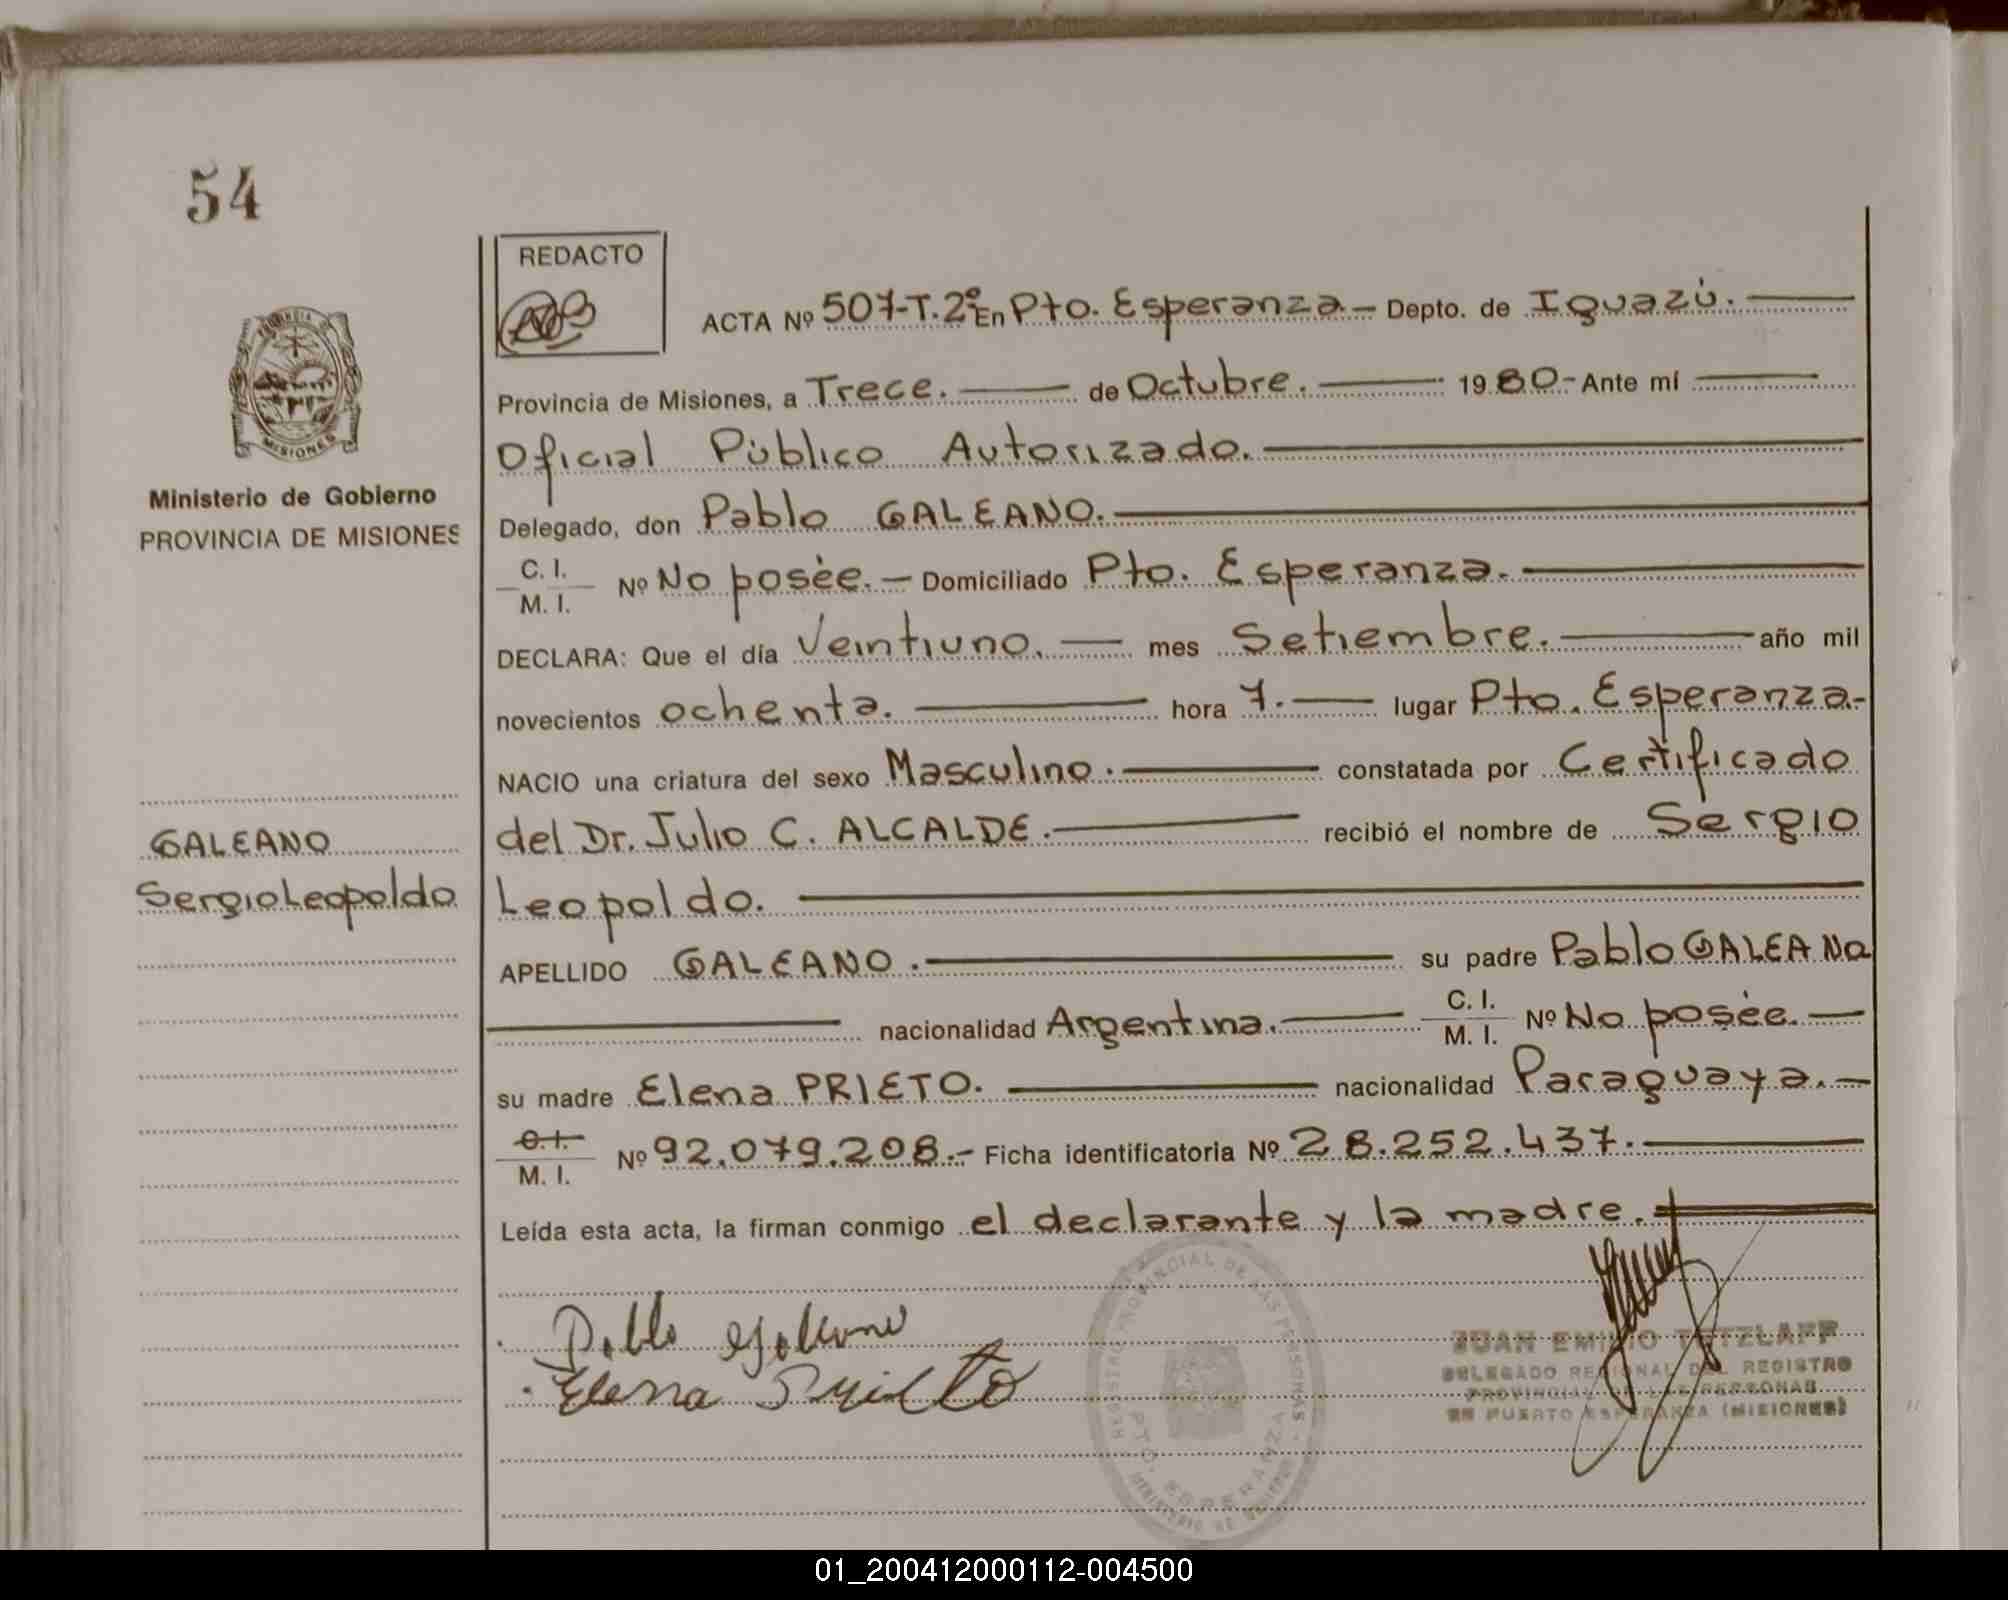 54
REDACTO
ACTA Nº 507-T.2º En Pto. Esperanza.- Depto. de Iguazú.
Provincia de Misiones, a Trece. de Octubre. 1980.- Ante mí
Oficial Público Autorizado.
MISIONES
Ministerio de Gobierno
PROVINCIA DE MISIONES
Delegado, don Pablo GALEANO.
C. I.
M. I. Nº No posée.- Domiciliado Pto. Esperanza.
DECLARA: Que el día Veintiuno. mes Setiembre. año mil
novecientos ochenta. hora 7. lugar Pto. Esperanza.-
NACIO una criatura del sexo Masculino. constatada por Certificado
GALEANO
Sergio Leopoldo
del Dr. Julio C. ALCALDE. recibió el nombre de Sergio
Leopoldo.
APELLIDO GALEANO. su padre Pablo GALEANO
nacionalidad Argentina. C. I.
M. I. Nº No posée.-
su madre Elena PRIETO. nacionalidad Paraguaya.-
C. I.
M. I. Nº 92.079.208.- Ficha identificatoria Nº 28.252.437.
Leída esta acta, la firman conmigo el declarante y la madre.
Pablo Galeano
Elena Prieto
REGISTRO PROVINCIAL DE LAS PERSONAS
PTO. ESPERANZA
MINISTERIO DE GOBIERNO
JUAN EMILIO TETZLAFF
DELEGADO REGIONAL DEL REGISTRO
PROVINCIAL DE LAS PERSONAS
EN PUERTO ESPERANZA (MISIONES)
01_200412000112-004500